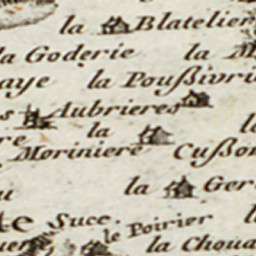 la Blatelier
la Goderie la M
aye la Poußivri
s Aubrieres
re la l
Moriniere Cußon
la Ger
u la
te Suce. le Poirier
uer la Choua